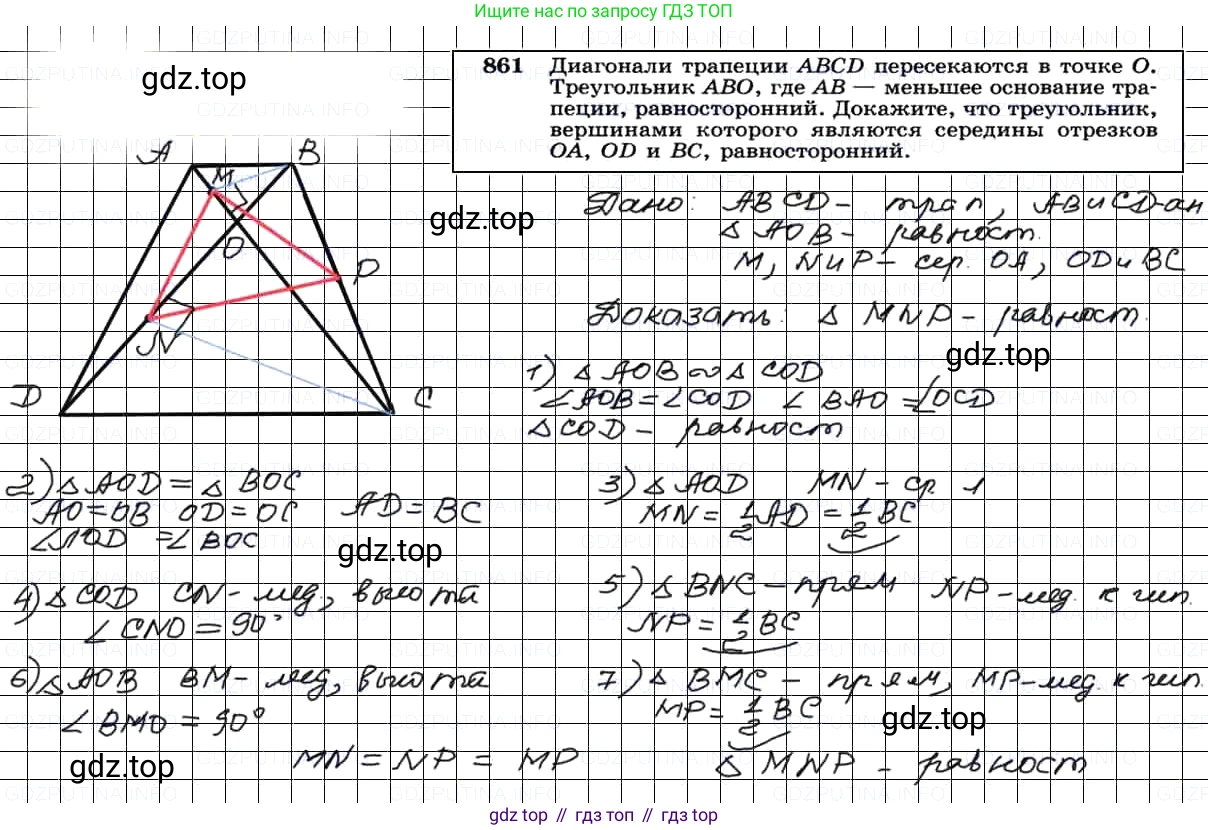 Ищите нас по запросу ГДЗ ТОП
gdz.top
861 Диагонали трапеции ABCD пересекаются в точке O.
Треугольник ABO, где AB — меньшее основание тра-
пеции, равносторонний. Докажите, что треугольник,
вершинами которого являются середины отрезков
OA, OD и BC, равносторонний.
A B
M
O
P
N
D C
gdz.top
Дано: ABCD - трап, AB и CD - осн
△ AOB - равност.
M, N и P - сер. OA, OD и BC
Доказать: △ MNP - равност.
gdz.top
1) △ AOB ∾ △ COD
∠AOB = ∠COD ∠ BAO = ∠OCD
△ COD - равност
2) △ AOD = △ BOC
AO = OB OD = OC AD = BC
∠AOD = ∠ BOC
gdz.top
3) △ AOD MN - ср л
MN = 1/2 AD = 1/2 BC
4) △ COD CN - мед., высота
∠ CNO = 90°
5) △ BNC - прям NP - мед. к гип.
NP = 1/2 BC
6) △ AOB BM - мед, высота
∠ BMO = 90°
gdz.top
7) △ BMC - прям, MP - мед. к гип.
MP = 1/2 BC
gdz.top
MN = NP = MP △ MNP - равност
gdz top // гдз топ // gdz.top
GDZPUTINA.INFO